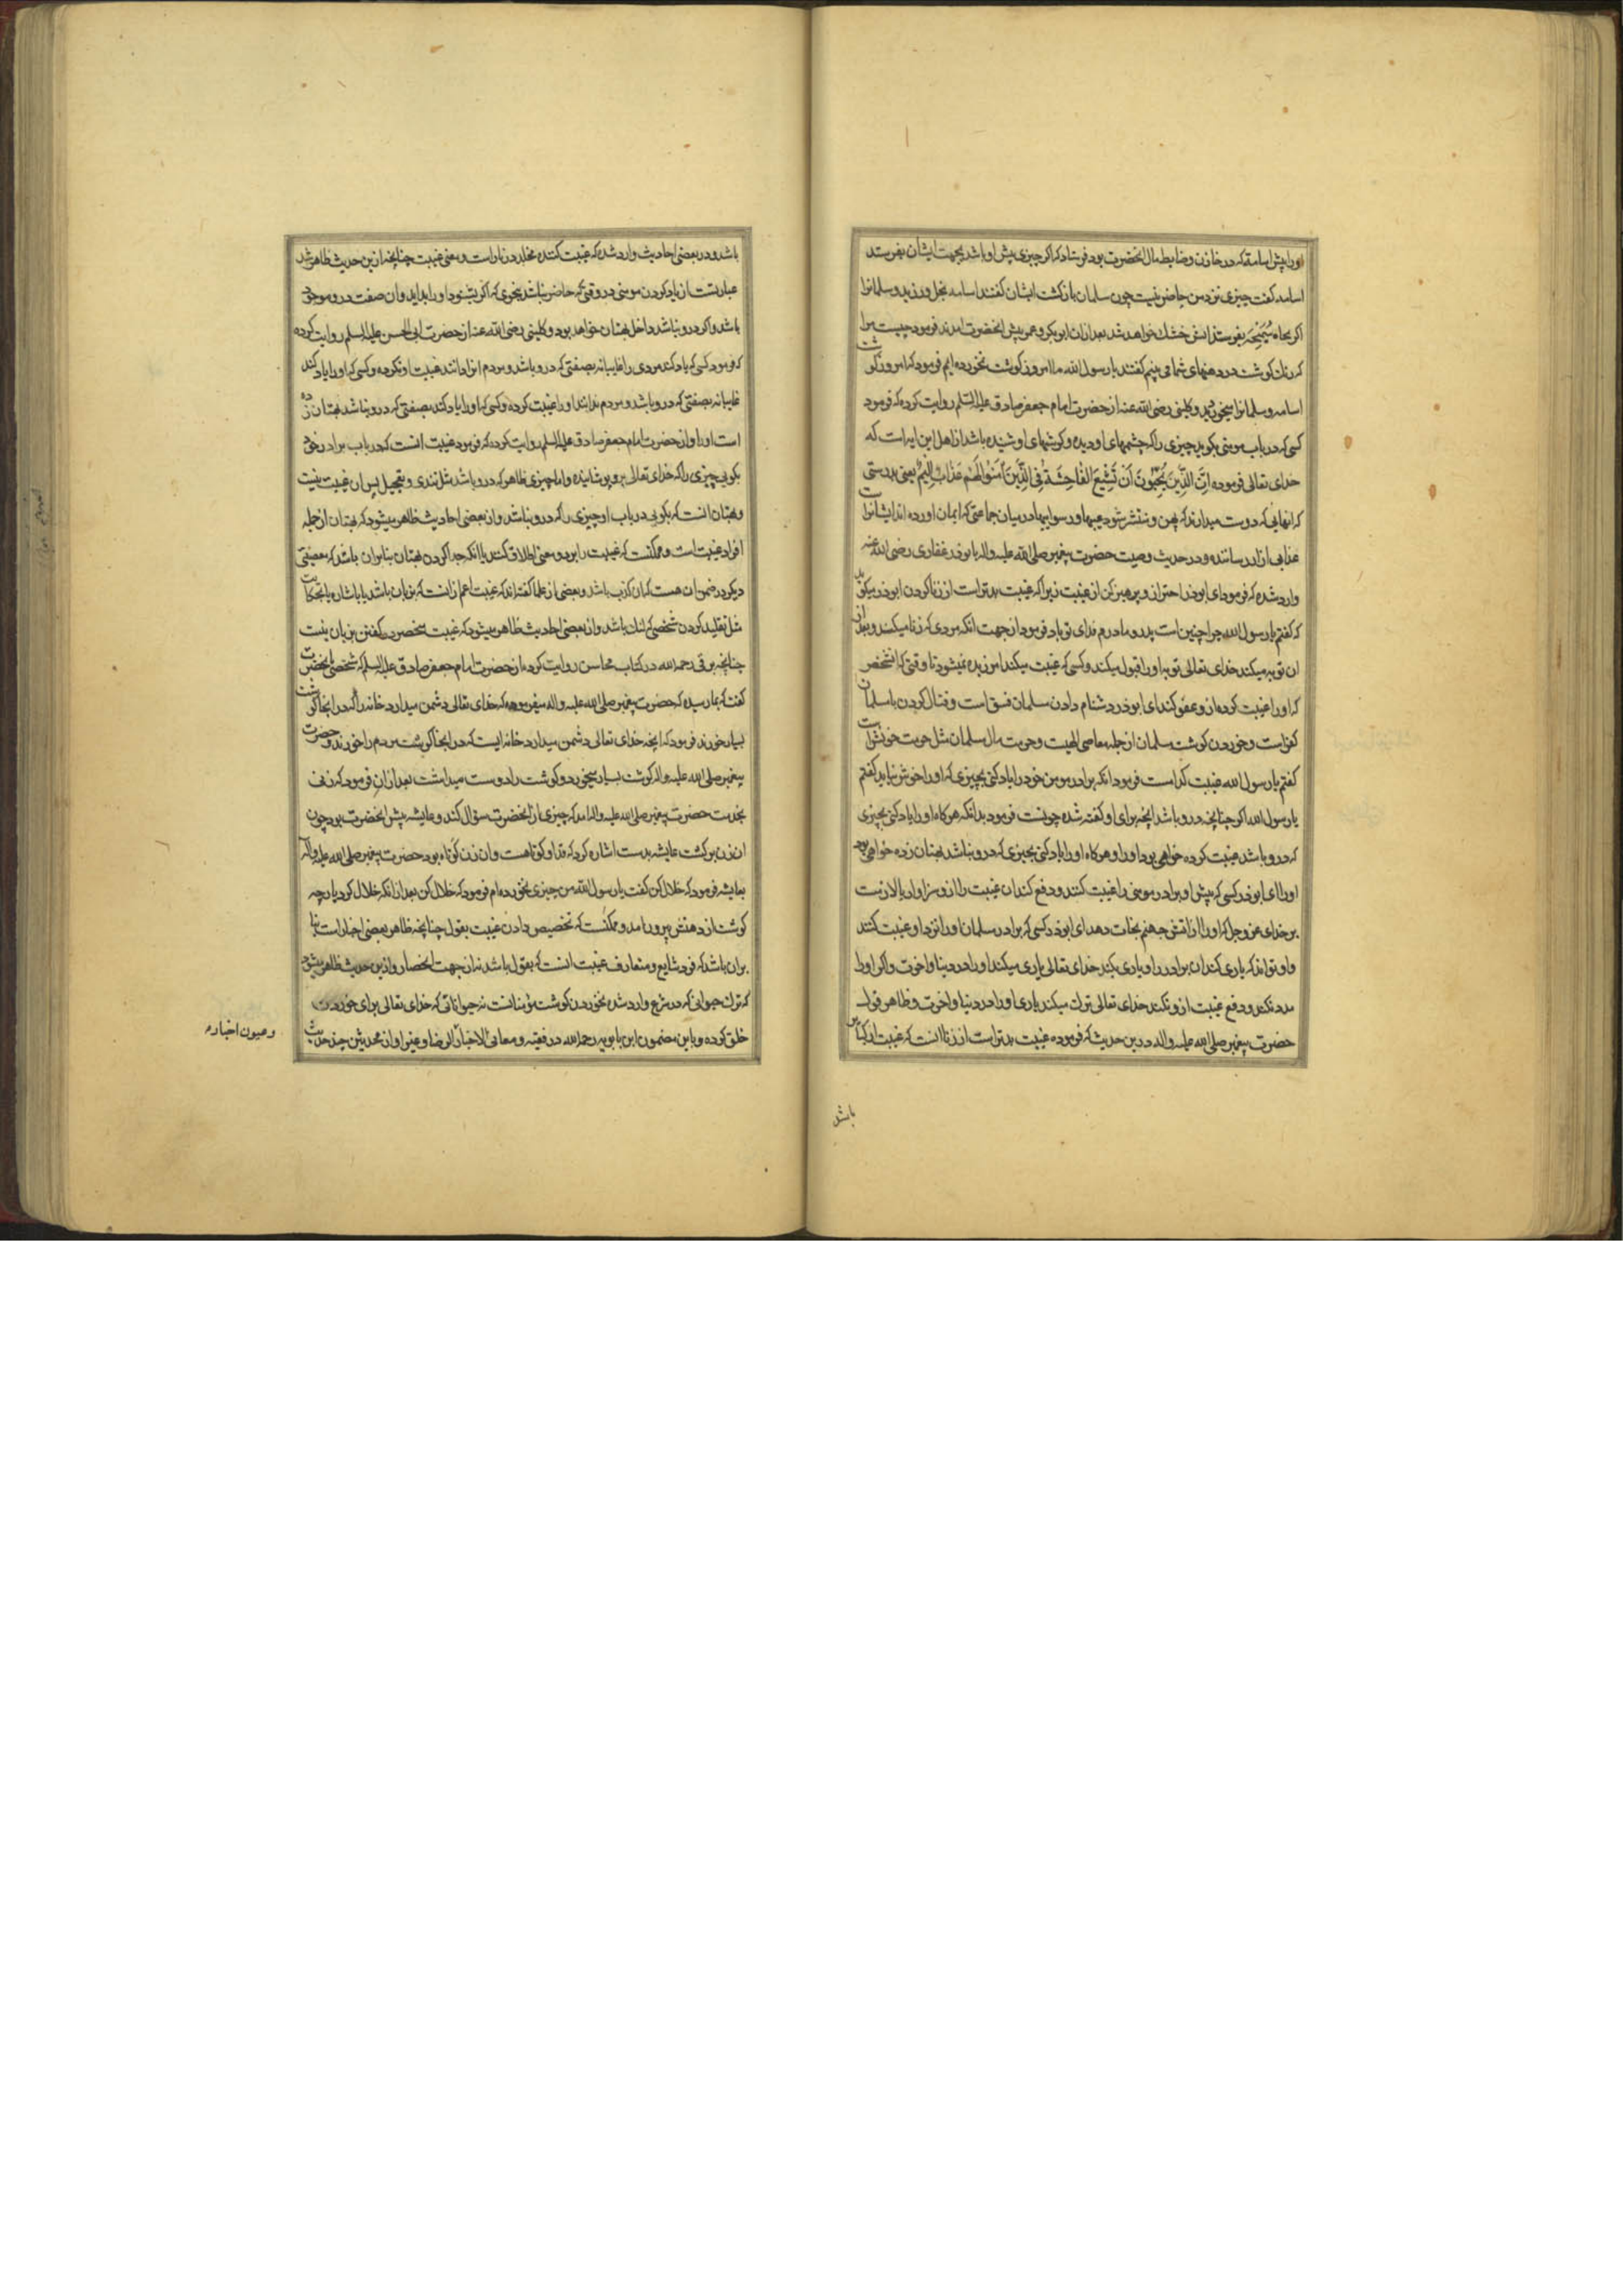 او را پیش اسامه که در خازن و ضابط مال انحضرت بود فرستاد که اکر چیزی پیش او باشد بجهت ایشان بفرستد
اسامه کفت چیزی نزد من حاضر نیست چون سلمان بازکشت ایشان کفتند اسامه بخل ورزید و سلمانرا
اکر بچاه سمیحه بفرستند ابش خشک خواهد شد بعد ازان ابوبکر و عمر پیش انحضرت امدند فرمود چیست مرا
که رنک کوشت در دهنهای شما می بینم کفتند یا رسول الله ما امروز کوشت نخورده ایم فرمود که امروز کوشت
اسامه و سلمانرا میخورید و کلینی رضی الله عنه از حضرت امام جعفر صادق علیه السلم روایت کرده که فرمود
کسی که در باب مومنی بکوید چیزی را که چشمهای او دیده و کوشهای او شنیده باشد از اهل این ایه است که
خدای تعالی فرموده اِنَّ الَّذِینَ یُحِبُّونَ اَنْ تَشِیعَ الْفَاحِشَةُ فِی الَّذِینَ اٰمَنُوا لَهُمْ عَذَابٌ اَلِیمٌ یعنی بدرستی
که انهایی که دوست میدارند که پهن و منتشر شود عیبها و رسواییها در میان جماعتی که ایمان اورده اند ایشانراست
عذابی ازار رساننده و در حدیث وصیت حضرت پیغمبر صلی الله علیه واله با بوذر غفاری رضی الله عنه
وارد شده که فرمود ای ابوذر احتراز و پرهیز کن از غیبت زیرا که غیبت بدتر است از زنا کردن ابوذر میکوید
که کفتم یا رسول الله چرا چنین است پدر و مادرم فدای تو باد فرمود از جهت انکه مردی که زنا میکند و بعد از
ان توبه میکند خدای تعالی توبه او را قبول میکند و کسی که غیبت میکند امرزیده نمیشود تا وقتی که انشخص
که او را غیبت کرده ازو عفو کند ای ابوذر دشنام دادن مسلمان فسق است و قتال کردن با مسلمان
کفر است و خوردن کوشت مسلمان از جمله معاصی الهیست و حرمت مال مسلمان مثل حرمت خونش است
کفتم یا رسول الله غیبت کدام است فرمود انکه برادر مومن خود را یاد کنی بچیزی که او را خوش نیاید کفتم
یا رسول الله اکر چنانچه درو باشد انچه برای او کفته شده چونست فرمود بدانکه هرکاه او را یاد کنی بچیزی
که درو باشد غیبت کرده خواهی بود او را و هرکاه او را یاد کنی بچیزی که درو نباشد بهتان زده خواهی بود
او را ای ابوذر کسی که پیش او برادر مومنی را غیبت کنند و دفع کند ان غیبت را ازو سزاوار یا لازمست
بر خدای عز و جل که او را از اتش جهنم نجات دهد ای ابوذر کسی که برادر مسلمان او را نزد او غیبت کنند
و او تواند که یاری کند ان برادر را و یاری بکند خدای تعالی یاری میکند او را در دنیا و اخرت و اکر او را
مدد نکند و دفع غیبت ازو نکند خدای تعالی ترک میکند یاری او را در دنیا و اخرت و ظاهر قول
حضرت پیغمبر صلی الله علیه واله درین حدیث که فرموده غیبت بدتر است از زنا انست که غیبت از کبایر
باشد
باشد و در بعضی احادیث وارد شده که غیبت کننده مخلد در نار است و معنی غیبت چنانچه ازین حدیث ظاهر شد
عبارتست از یاد کردن مومنی در وقتی که حاضر نباشد بنحوی که اکر بشنود او را بد اید و ان صفت درو موجود
باشد و اکر درو نباشد داخل بهتان خواهد بود و کلینی رضی الله عنه از حضرت ابی الحسن علیه السلم روایت کرده
که فرمود کسی که یاد کند مردی را غایبانه بصفتی که درو باشد و مردم انرا دانند غیبت او نکرده و کسی که او را یاد کند
غایبانه بصفتی که درو باشد و مردم ندانند او را غیبت کرده و کسی که او را یاد کند بصفتی که درو نباشد بهتان زده
است او را و از حضرت امام جعفر صادق علیه السلم روایت کرده که فرمود غیبت انست که در باب برادر خود
بکویی چیزی را که خدای تعالی برو پوشانیده و اما چیزی ظاهر که درو باشد مثل تندی و تعجیل پس ان غیبت نیست
و بهتان انست که بکویی در باب او چیزی را که درو نباشد و از بعضی احادیث ظاهر میشود که بهتان از جمله
افراد غیبت است و ممکنست که غیبت را بر دو معنی اطلاق کنند یا انکه جدا کردن بهتان بنابران باشد که معصیتی
دیکر در ضمن ان هست که ان کذب باشد و بعضی از علما کفته اند که غیبت اعم ازانست که بزبان باشد یا باشاره یا بحکایت
مثل تقلید کردن شخصی که لنک باشد و از بعضی احادیث ظاهر میشود که غیبت منحصر در کفتن بزبان نیست
چنانچه برقی رحمه الله در کتاب محاسن روایت کرده از حضرت امام جعفر صادق علیه السلم که شخصی بانحضرت
کفت که بما رسیده که حضرت پیغمبر صلی الله علیه واله میفرموده که خدای تعالی دشمن میدارد خانه را که در انجا کوشت
بسیار خورند فرمود که انچه خدای تعالی دشمن میدارد خانه ایست که در انجا کوشت مردم را خورند و حضرت
پیغمبر صلی الله علیه واله کوشت بسیار میخورد و کوشت را دوست میداشت بعد ازان فرمود که زنی
بخدمت حضرت پیغمبر صلی الله علیه واله امد که چیزی از انحضرت سؤال کند و عایشه پیش انحضرت بود چون
ان زن برکشت عایشه بدست اشاره کرد که قد او کوتاهست و ان زن کوتاه بود حضرت پیغمبر صلی الله علیه واله
بعایشه فرمود که خلال کن کفت یا رسول الله من چیزی نخورده ام فرمود که خلال کن بعد ازانکه خلال کرد پارچه
کوشت از دهنش بیرون امد و ممکنست که تخصیص دادن غیبت بقول چنانچه ظاهر بعضی اخبار است بنا
بران باشد که فرد شایع و متعارف غیبت انست که بقول باشد نه از جهت انحصار و ازین حدیث ظاهر میشود
که ترک حیوانی که در شرع وارد شده نخوردن کوشت مؤمنانست نه حیواناتی که خدای تعالی برای خوردن
خلق کرده و باین مضمون ابن بابویه رحمه الله در فقیه و معانی الاخبار الرضا و غیر او از محدثین چند حدیث
و عیون اخباره